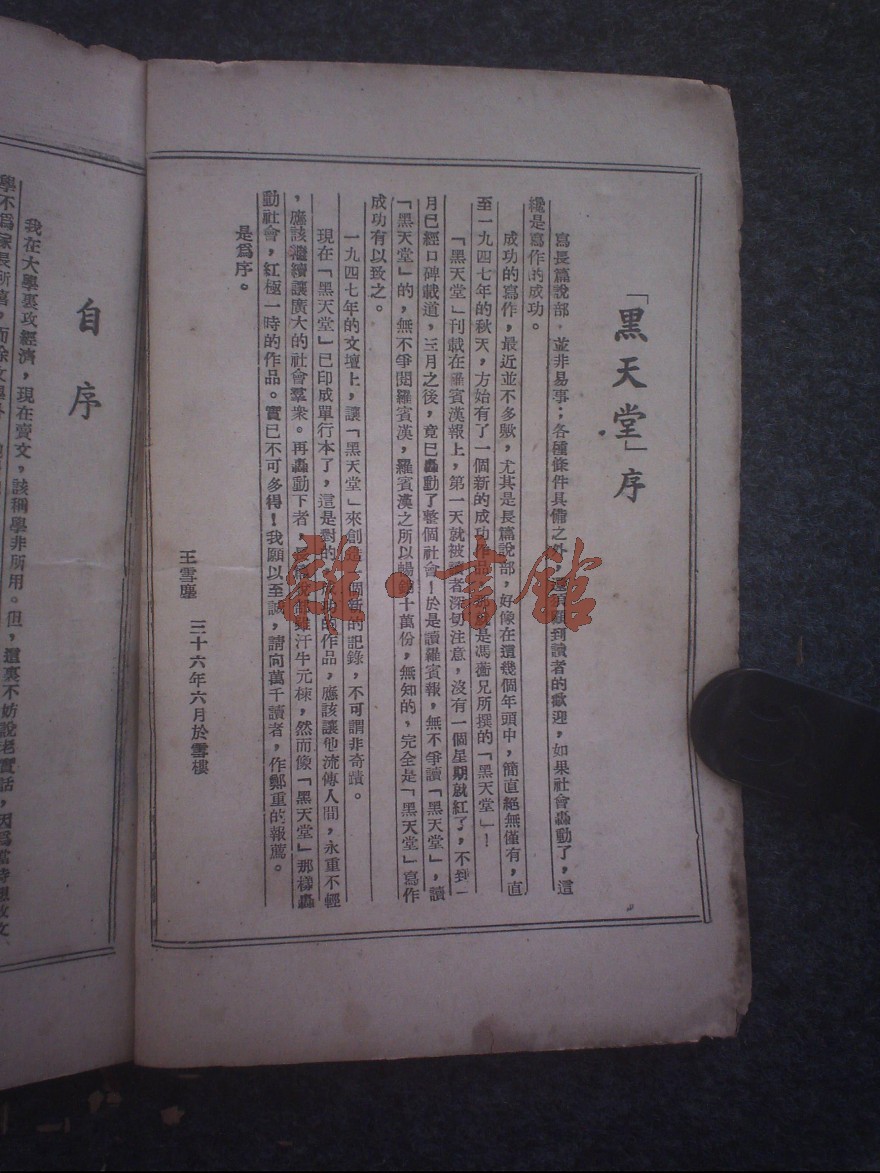 「黑天堂」序
寫長篇說部，並非易事；各種條件具備之外，還須顧到讀者的歡迎，如果社會轟動了，這
纔是寫作的成功。
成功的寫作，最近並不多歟，尤其是長篇說部，好像在這幾個年頭中，簡直絕無僅有，直
至一九四七年的秋天，方始有了一個新的成功作品，那就是馮蘅兄所撰的「黑天堂」！
「黑天堂」刊載在羅賓漢報上，第一天就被讀者深切注意，沒有一個星期就紅了，不到一
月已經口碑載道，三月之後，竟已轟動了整個社會！於是讀羅賓報，無不爭讀「黑天堂」，讀
「黑天堂」的，無不爭閱羅賓漢，羅賓漢之所以暢銷十萬份，無知的，完全是「黑天堂」寫作
成功有以致之。
一九四七年的文壇上，讓「黑天堂」來創造一個新的記錄，不可謂非奇蹟。
現在「黑天堂」已印成單行本了，這是對的，成功的作品，應該讓他流傳人間，永重不輕
，應該繼續讓廣大的社會羣衆。再轟動下者，長篇說部雖汗牛元棟，然而像「黑天堂」那樣轟
動社會，紅極一時的作品。實已不可多得！我願以至誠，請向萬千讀者，作鄭重的報薦。
是爲序。
王雪塵 三十六年六月於雪樓
自序
我在大學裏攻經濟，現在賣文，該稱學非所用。但，這裏不妨說老實話，因爲當時想攻文
學不爲家長所喜，而除文學外
雜·書館